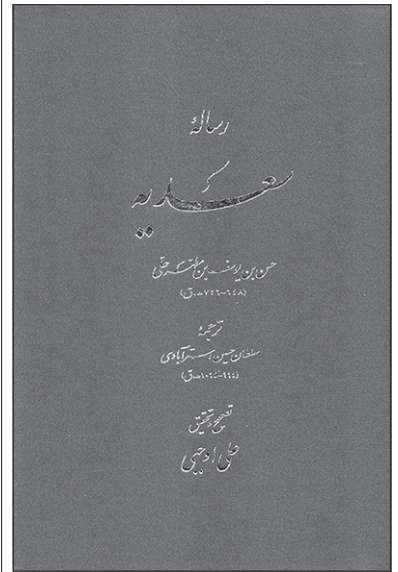 رسالهٔ
سعدیه
حسن بن یوسف بن مطهر حلی
(۶۴۸-۷۲۶ هـ.ق)
ترجمهٔ
سلطان حسین استرآبادی
تصحیح و تحقیق
علی اوجبی